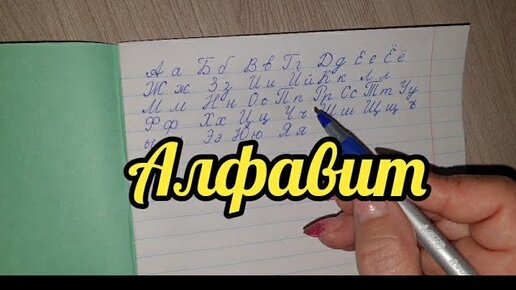 А а Б б В в Г г Д д Е е Ё ё
Ж ж З з И и Й й К к Л л
М м Н н О о П п Р р С с Т т У у
Ф ф Х х Ц ц Ч ч Ш ш Щ щ ъ
ы Э э Ю ю Я я
Алфавит